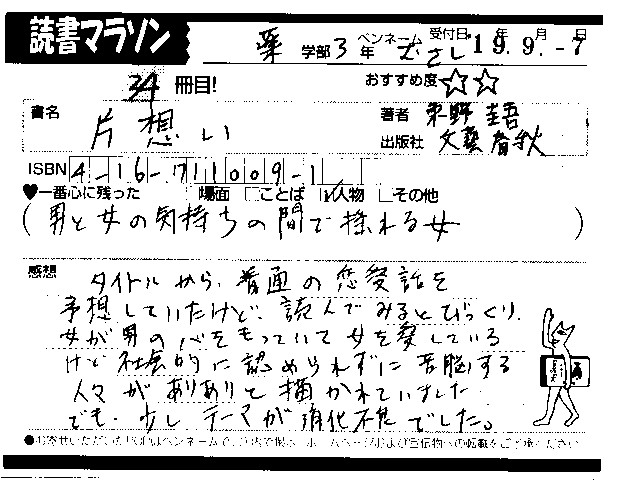 読書マラソン
薬学部3年 ペンネーム むさし 受付日 19年9月-7日
34冊目! おすすめ度☆☆
書名 片想い
著者 東野圭吾
出版社 文藝春秋
ISBN 4-16-711009-1
♥一番心に残った □場面 □ことば ☑人物 □その他
(男と女の気持ちの間で揺れる女)
感想 タイトルから、普通の恋愛話を
予想していたけど、読んでみるとびっくり。
女が男の心をもっていて女を愛している
けど社会的に認められずに苦脳する
人々がありありと描かれていました
でも、少しテーマが消化不足でした。